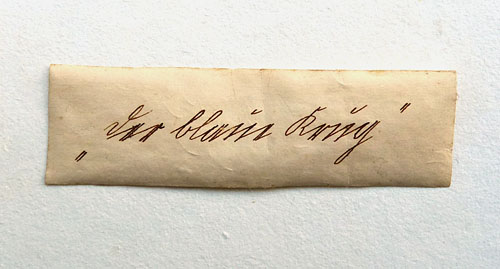 „der blaue Krug“